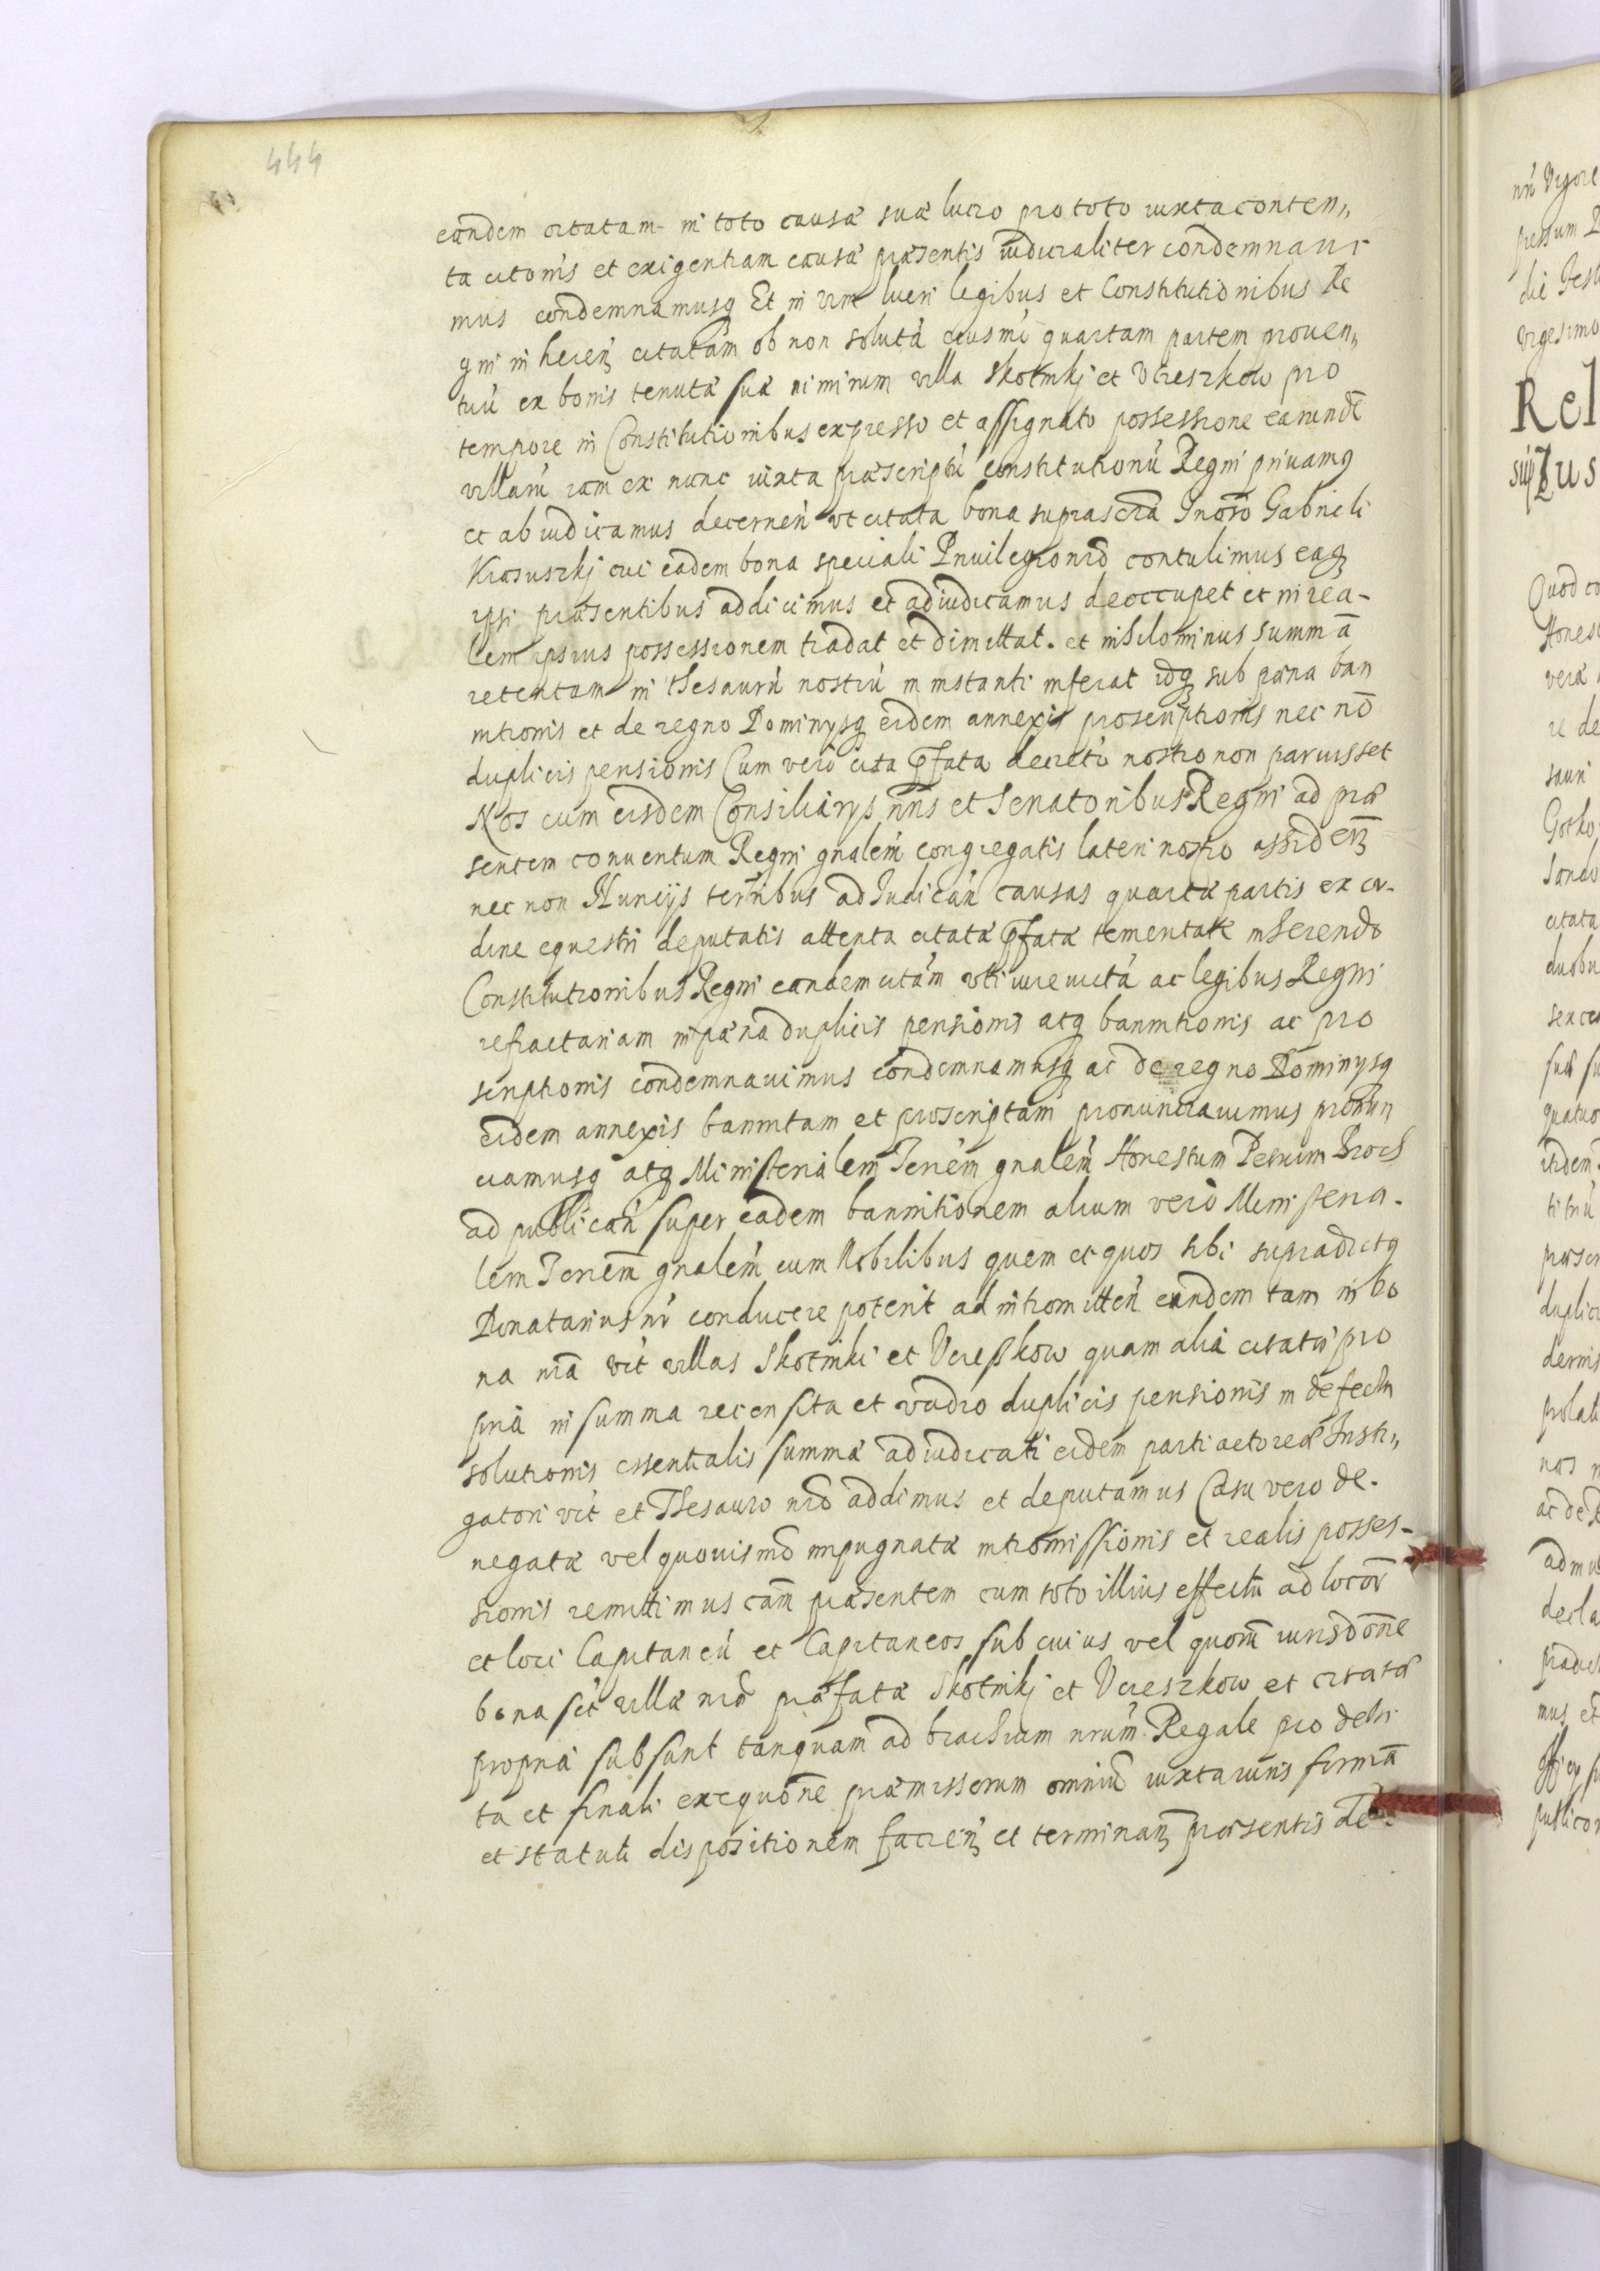 444
eandem citatam in toto causæ suæ lucro pro toto iuxta conten„
ta citõnis et exigentiam causæ præsentis iudicialiter condemnaui
mus condemnamusq Et in vim lucri legibus et Constitutionibus Re
gni in heren citatam ob non solutã eiusmi quartam partem prouen„
tuũ ex bonis tenutæ suæ nimirum villa Skotnikj et Vereszkow pro
tempore in Constitutionibus expresso et assignato possessione earundẽ
villarũ iam ex nunc iuxta præscriptũ constitutionũ Regni priuamq
et abiudicamus decernen vt citata bona suprascrta Gnoso Gabrieli
Krosuszkj cui eadem bona speciali Priuilegio nrõ contulimus eaq
ipsi præsentibus addicimus et adiudicamus deoccupet et in rea-
lem ipsius possessionem tradat et dimittat. et nihilominus summã
retentam in thesaurũ nostrũ in instanti inferat idq sub pæna ban
nitionis et de regno Dominysq eidem annexis proscriptionis nec nõ
duplicis pensionis Cum vero cita pfata decreto nostro non paruisset
Nos cum eisdem Consiliarys nris et Senatoribus Regni ad præ
sentem conuentum Regni gnalem congregatis lateri nostro assiden
nec non Nuncijs terribus ad Iudican causas quartæ partis ex or-
dine equestri deputatis attenta citatæ pfatæ temeritate inserendo
Constitutionibus Regni eandem citam vti iure victã ac legibus Regni
refractariam in pæna duplicis pensionis atq bannitionis ac pro
scriptionis condemnauimus condemnamusq ac de regno Dominysq
eidem annexis bannitam et proscriptam pronunciauimus pronun
ciamusq atq Ministerialem Terrem gnalem Honestum Petrum Broch
ad publican super eadem bannitionem alium vero Ministeria-
lem Terrem gnalem cum Nobilibus quem et quos sibi supradictq
Donatarius nr conducere poterit ad intromitten eundem tam in bo
na nra vit villas Skotniki et Vereszkow quam alia citatæ pro
pria in summa recensita et vadio duplicis pensionis in defectu
solutionis essentialis summæ adiudicati eidem parti actoreæ Insti„
gatori vit et Thesauro nrõ addimus et deputamus Casu vero de-
negatæ vel quouismõ impugnatæ intromissionis et realis posses-
sionis remittimus cam præsentem cum toto illius effectu ad locor
et loci Capitaneũ et Capitaneos sub cuius vel quorũ iurisdõne
bona sit villæ nræ præfatæ Skotnikj et Vereszkow et citatæ
propria subsunt tanquam ad brachium nrum Regale pro debi
ta et finali exequõne præmissorum omniũ iuxta iuris formã
et statuti dispositionem facien et terminan præsentis de-
Rel